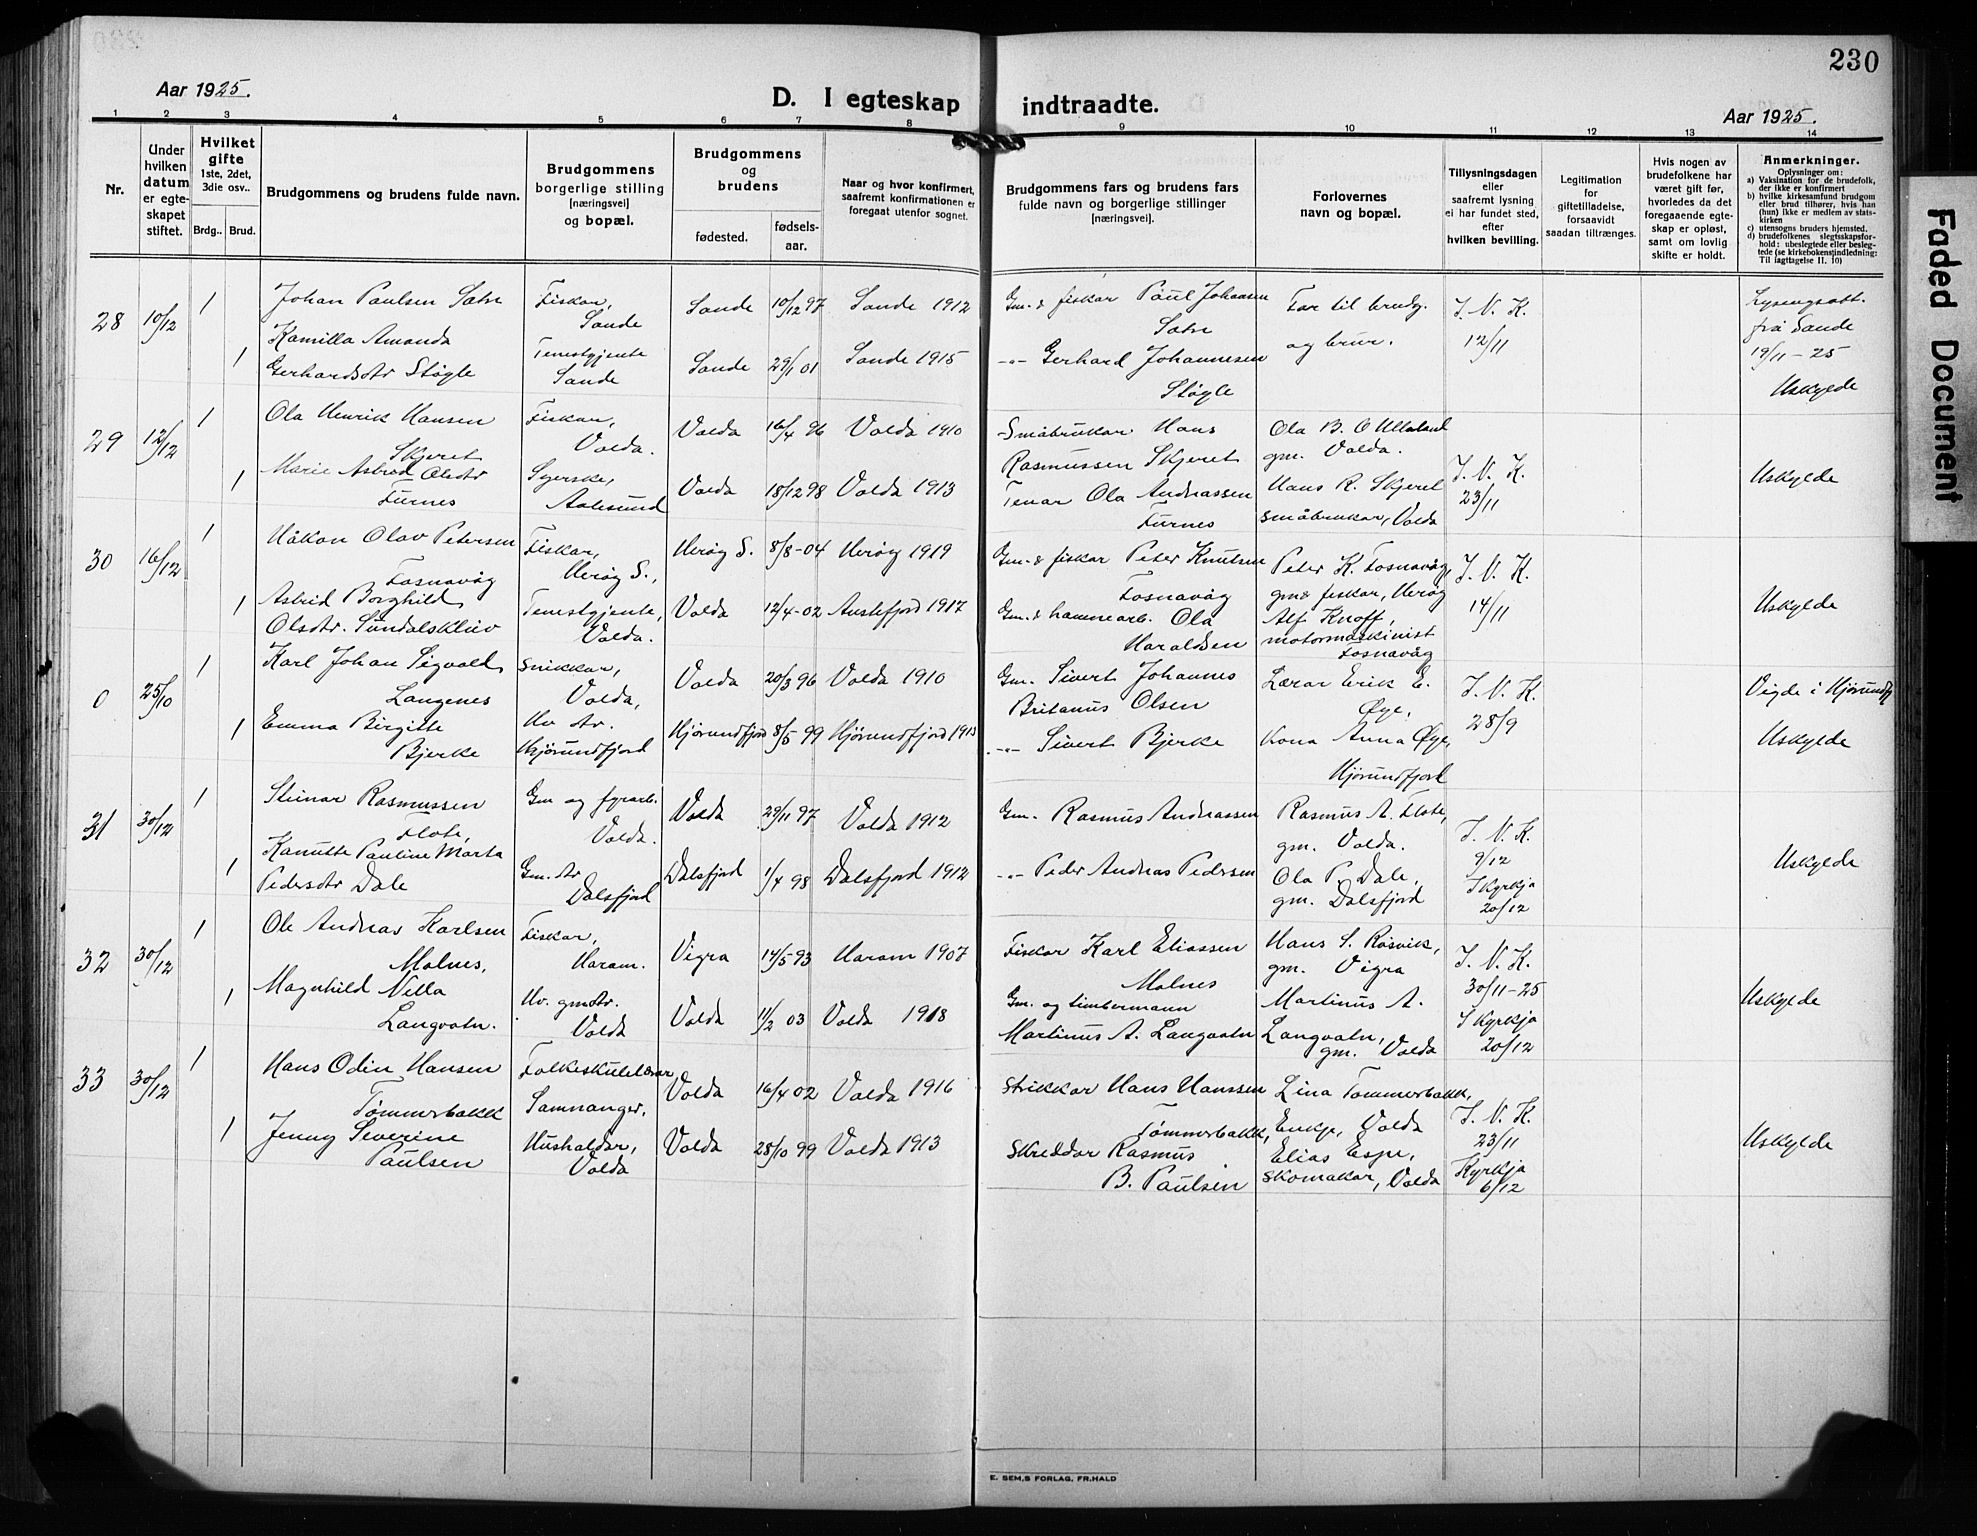 230
Aar 1925.
D. I egteskap indtraadte.
Aar 1925.
1 2 3 4 5 6 7 8 9 10 11 12 13 14
Nr.
Under hvilken datum er egteskapet stiftet.
Hvilket gifte 1ste, 2det, 3die osv..
Brdg.. Brud.
Brudgommens og brudens fulde navn.
Brudgommens borgerlige stilling [næringsvei] og bopæl.
Brudgommens og brudens
fødested.
fødselsaar.
Naar og hvor konfirmert, saafremt konfirmationen er foregaat utenfor sognet.
Brudgommens fars og brudens fars fulde navn og borgerlige stillinger [næringsvei].
Forlovernes navn og bopæl.
Tillysningsdagen eller saafremt lysning ei har fundet sted, efter hvilken bevilling.
Legitimation for giftetilladelse, forsaavidt saadan tiltrænges.
Hvis nogen av brudefolkene har været gift før, hvorledes da det foregaaende egteskap er opløst, samt om lovlig skifte er holdt.
Anmerkninger.
Oplysninger om:
a) Vaksination for de brudefolk, der ikke er konfirmert
b) hvilke kirkesamfund brudgom eller brud tilhører, hvis han (hun) ikke er medlem av statskirken
c) utensogns bruders hjemsted.
d) brudefolkenes slegtsskapsforhold: ubeslegtede eller beslegtede (se kirkebokensindledning: Til iagttagelse II. 10)
28 10/12 1 Johan Paulsen Satre Fiskar, Sande Sande 10/12 97 Sande 1912 Gm. & fiskar Paul Johansen Satre Far til brudg. og brur. I. N. K. 12/11 Lysingsatt. frå Sande 19/11-25
1 Kamilla Amanda Gerhardsdtr Støyle Tenestgjente Sande Sande 29/1 01 Sande 1915 -"- Gerhard Johannesen Støyle Uskylde
29 12/12 1 Ola Henrik Hansen Skjeret Fiskar, Volda. Volda 16/4 96 Volda 1910 Småbrukar Hans Rasmussen Skjeret Ola B. O Ulleland gm. Volda. I. N. K. 23/11 Uskylde
1 Marie Astrid Olsdtr Furnes Syerske, Aalesund Volda 18/12 98 Volda 1913 Tenar Ola Andreassen Furnes Hans R. Skjeret småbrukar, Volda
30 16/12 1 Håkon Olav Petersen Fosnavåg Fiskar, Herøy S., Herøy S. 8/8-04 Herøy 1919 Gm. & fiskar Peter Knutsen Fosnavåg Peter K. Fosnavåg, gm & fiskar, Herøy I. N. K. 14/11 Uskylde
1 Astrid Borghild Olsdtr. Sundalskleiv Tenestgjente, Volda. Volda 12/4-02 Austefjord 1917 Gm. & hamnearb. Ola Haraldsen Alf Knoff, motormaskinist Fosnavåg
0 25/10 1 Karl Johan Sigvald Langenes Snikkar, Volda, Volda 20/3 96 Volda 1910 Gm. Sivert Johannes Britanus Olsen Lærar Erik E. Øye, I. N. K. 28/9 Vigde i Hjørundfj
1 Emma Birgitte Bjerke Hv. dtr. Hjørundfjord Hjørundfjord 8/5 99 Hjørundfjord 1913 -"- Sivert Bjerke Kona Anna Øye, Hjørundfjord Uskylde
31 30/12 1 Steinar Rasmussen Flote, Gm og fyrarb. Volda. Volda 29/11 97 Volda 1912 Gm. Rasmus Andreassen Rasmus A. Flote, gm. Volda. I. N. K. 9/12 Uskylde
1 Kanutte Pauline Marta Pedersdtr Dale Gm. dtr Dalsfjord Dalsfjord 1/4 98 Dalsfjord 1912 -"- Peder Andreas Pedersen Ola P. Dale, gm. Dalsfjord I Kyrkja 20/12
32 30/12 1 Ole Andreas Karlsen Molnes, Fiskar, Haram. Vigra 14/5 93 Haram 1907 Fiskar Karl Eliassen Molnes Hans S. Røsvik, gm. Vigra I. N. K. 30/11-25 Uskylde
1 Magnhild Nella Langvatn. Hv. gmdtr. Volda Volda 11/2 03 Volda 1918 Gm. og timbermann Martinus A. Langvatn Martinus A. Langvatn, gm. Volda I Kyrkja 20/12
33 30/12 1 Hans Odin Hansen Tømmerbakk Folkeskulelærar Samnanger, Volda 16/4 02 Volda 1916 Strikkar Hans Hanssen Tømmerbakk, Lina Tømmerbakk, Enkje, Volda I. N. K. 23/11 Uskylde
1 Jenny Severine Paulsen Husholdar, Volda Volda 28/10 99 Volda 1913 Skreddar Rasmus B. Paulsen Elias Espe, skomakar, Volda Kyrkja 6/12
E. SEM,S FORLAG, FR.HALD
Faded Document